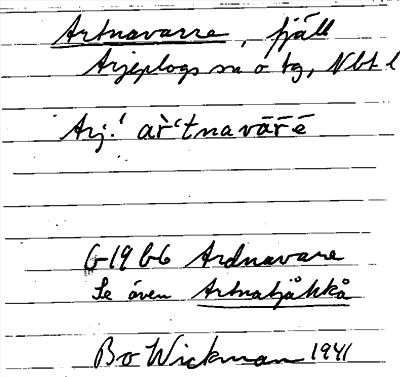 Artnavarre, fjäll
Arjeplogs sn o tg, Nbt l
Arj.! àr̀‘tnavār̄ē
G 19 b6 Ardnavare
Se även Artnatjåkkå
Bo Wickman 1941